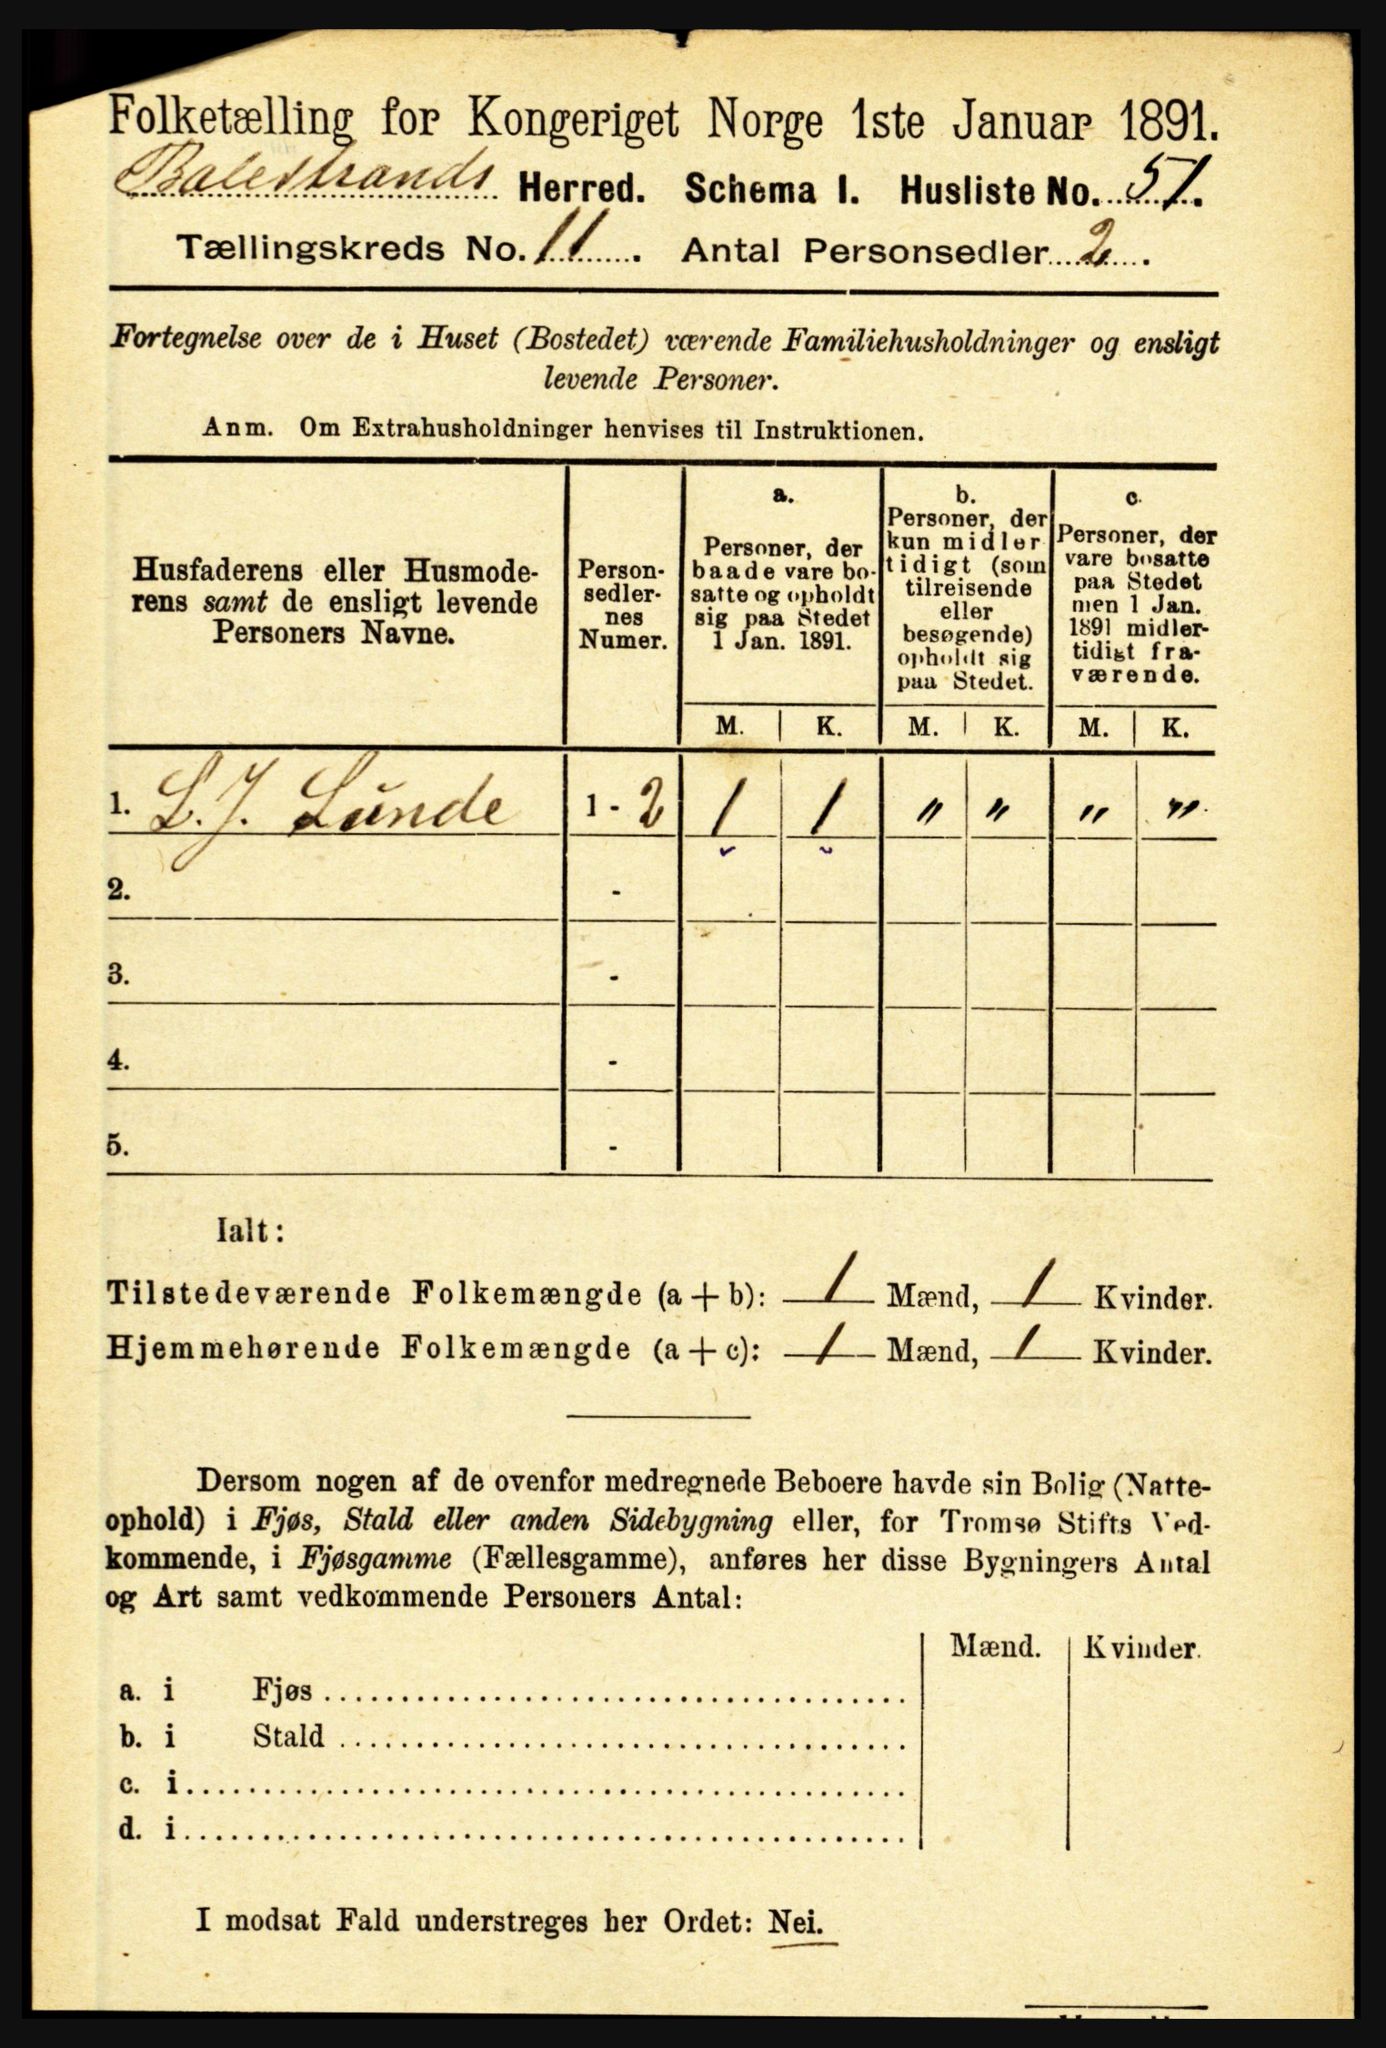 Folketælling for Kongeriget Norge 1ste Januar 1891.
Balestrands Herred. Schema I. Husliste No. 51.
Tællingskreds No. 11. Antal Personsedler 2.
Fortegnelse over de i Huset (Bostedet) værende Familiehusholdninger og ensligt
levende Personer.
Anm. Om Extrahusholdninger henvises til Instruktionen.
Husfaderens eller Husmode-
rens samt de ensligt levende
Personers Navne.
Person-
sedler-
nes
Numer.
a.
Personer, der
baade vare bo-
satte og opholdt
sig paa Stedet
1 Jan. 1891.
b.
Personer, der
kun midler
tidigt (som
tilreisende
eller
besøgende)
opholdt sig
paa Stedet.
c.
Personer, der
vare bosatte
paa Stedet
men 1 Jan.
1891 midler-
tidigt fra-
værende.
M. K. M. K. M. K.
1. L. J. Lunde 1 - 2 1 1 " " " "
2. -
3. -
4. -
5. -
Ialt:
Tilstedeværende Folkemængde (a + b): 1 Mænd, 1 Kvinder.
Hjemmehørende Folkemængde (a + c): 1 Mænd, 1 Kvinder.
Dersom nogen af de ovenfor medregnede Beboere havde sin Bolig (Natte-
ophold) i Fjøs, Stald eller anden Sidebygning eller, for Tromsø Stifts Ved-
kommende, i Fjøsgamme (Fællesgamme), anføres her disse Bygningers Antal
og Art samt vedkommende Personers Antal:
Mænd. Kvinder.
a. i Fjøs
b. i Stald
c. i
d. i
I modsat Fald understreges her Ordet: Nei.